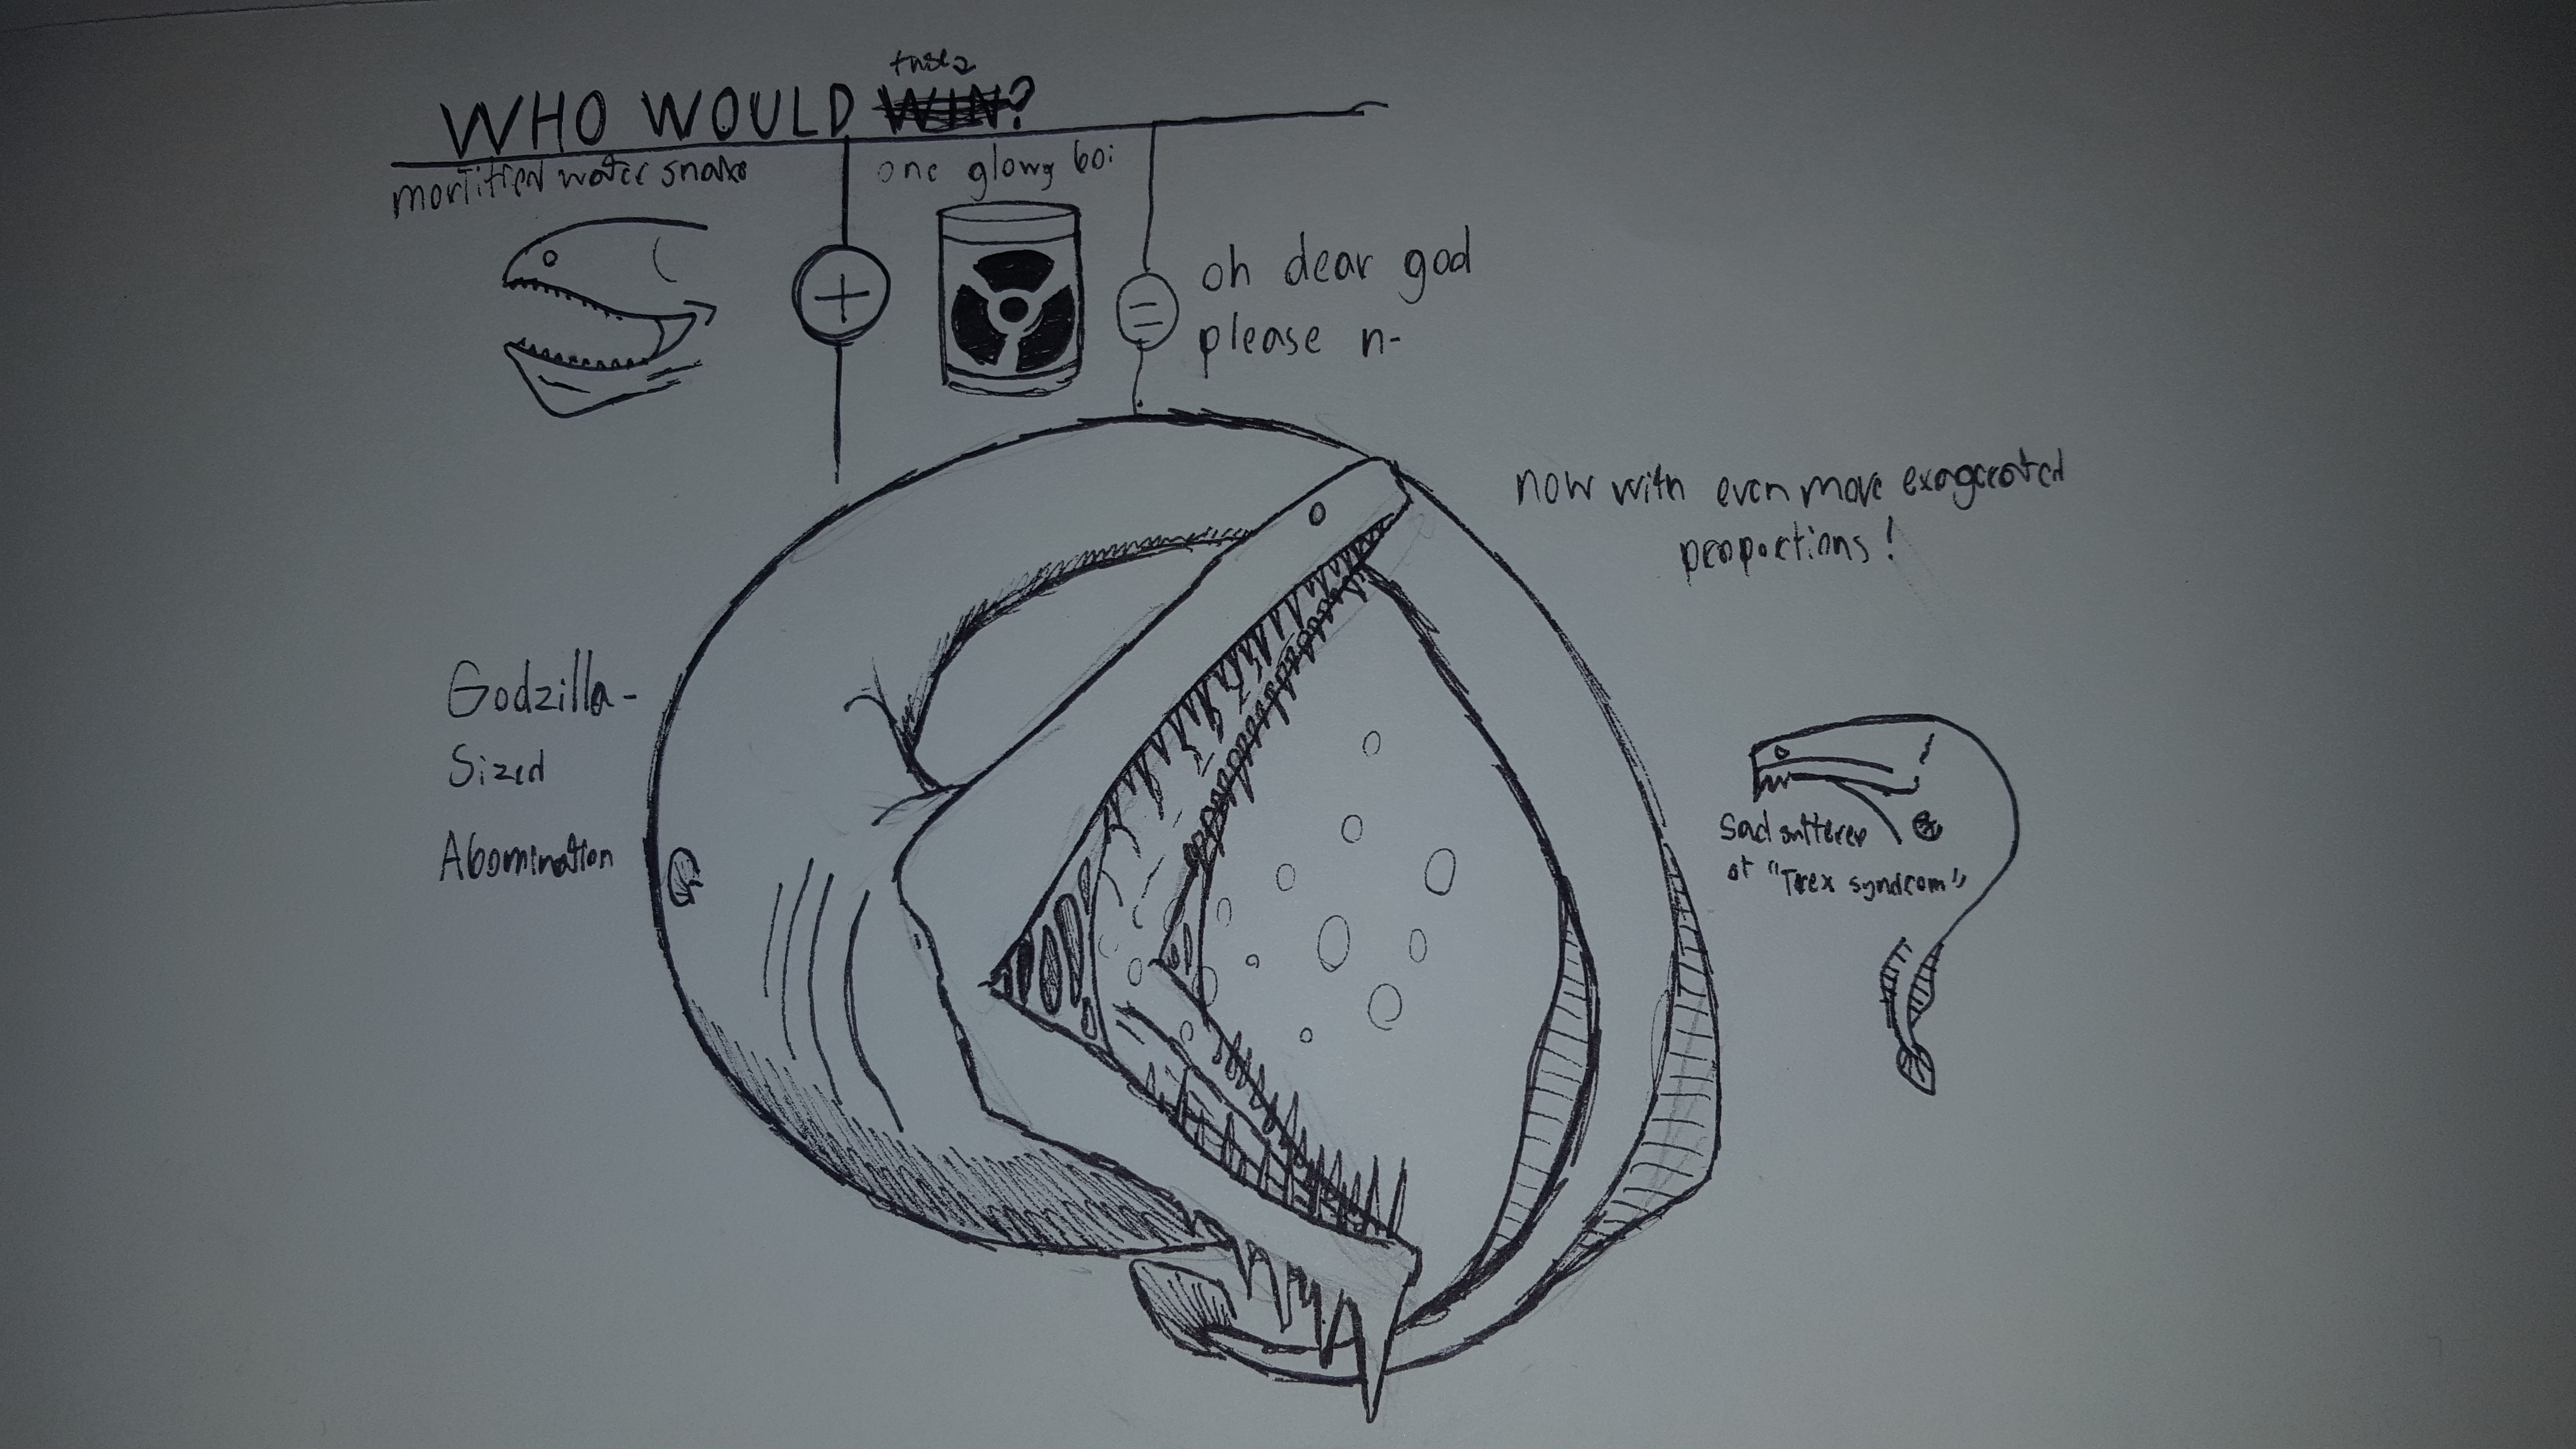 fuse
WHO WOULD WIN?
mortified water snake
one glowy boi
oh dear god
please n-
now with even more exagerated
proportions!
Godzilla-
Sized
Abomination
Sad sufferer
of "Trex syndrom"